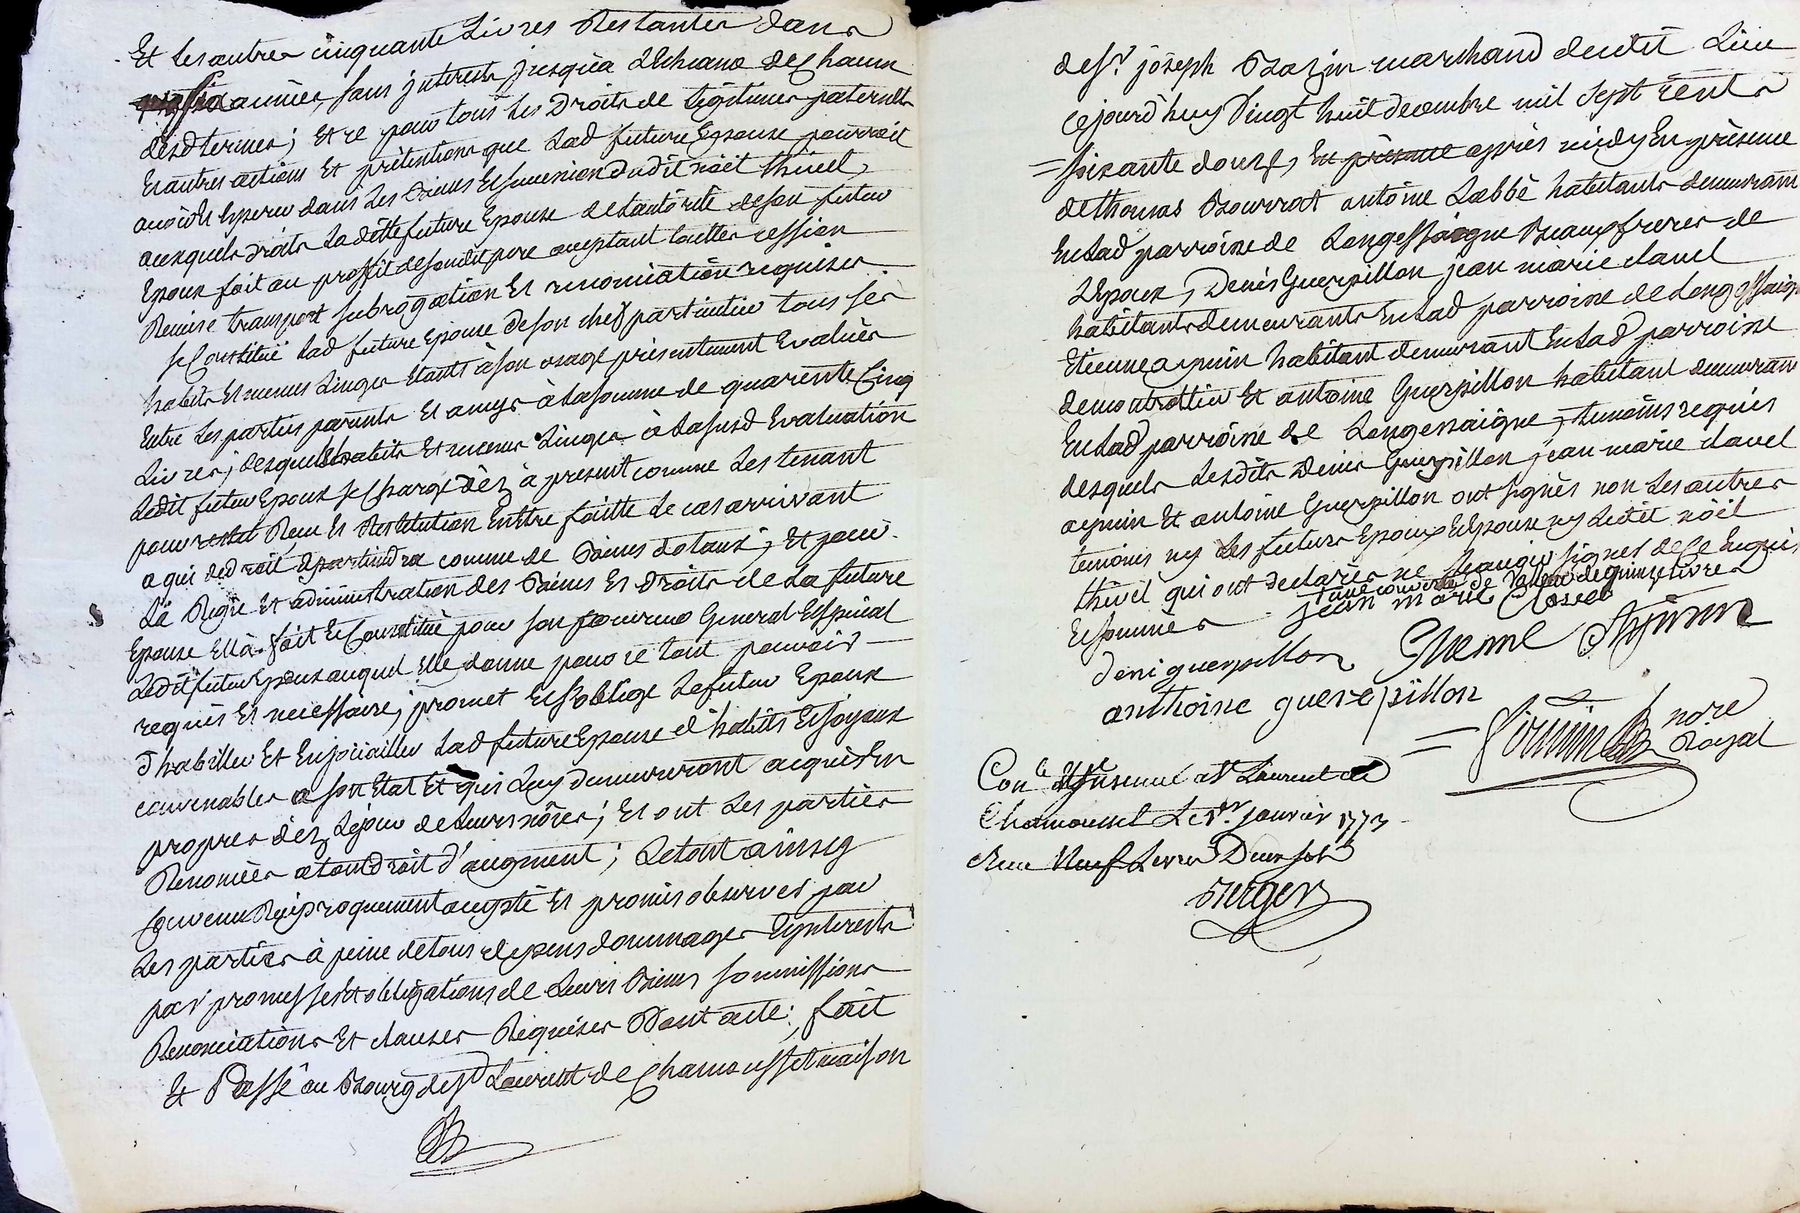 Et les autres cinquante Livres Restantes dans
année, sans jnterests jusqua LEcheance de Chacun
desd termes; Et ce pour tous les Droits de Légitimes paternelle
Et autres actions Et prétentions que Lad future Epouse pourroit
avoir Et Esperer dans Les Biens Et succession dudit nöël thivel,
auxquels droits La ditte future Epouse de Lautôrité de son futur
Epoux fait au proffit de sondit pere acceptant touttes cession
Remise transport subrogation Et renonciation requises
se Constitüe Lad future Epouse de son chef particulier tous ses
habits Et menus Linges Etants à son usage présentement Evalués
Entre Les parties parents Et amys à La somme de quarente Cinq
Livres; desquels habits Et menus Linges à La susd Evaluation
Ledit futur Epoux se Charge dèz à present comme Les tenant
pour Reçu Et Restitution Enttre faitte Le cas arrivant
a qui de droit apartiendra comme de Biens dotaux; Et pour
La Regie Et administration des Biens Et droits de La future
Epouse Ella fait Et Constitüe pour son procureur General Et special
Ledit futur Epoux auquel Elle donne pour ce tout pouvoir
requis Et necessaire; promet Et soblige Le futur Epoux
d'habiller Et Enjoüailler Lad future Epouse d'habits Et joyaux
convenables a son Etat Et qui Luy demeureront acquis En
propres dèz Lejour de Leurs nôces; Et ont Les parties
Renoncées a tout droit d'augment; Le tout ainsy
Convenu Réciproquement accepté Et promis observer par
Les parties à peine de tous depens dommages Et jnterests
par promesses Et obligations de Leurs Biens soumissions
Renonciations Et clauses Requises Dont acte; fait
Et Passé au Bourg de st Laurent de Chamousset maison
de sr. jôseph Bazin marchand dudit Lieu
Cejourd'huy Vingt huit decembre mil sept cents
= soixante douze, En présence après midy En présence
de thomas Bourrat antoine Labbé habitants demeurant
En Lad parroisse de Longessaigne Beauxfreres de
LEpoux, Denis Guerpillon jean marie clavel
habitants demeurants En Lad parroisse de Longessaigne
Etienne aymin habitant demeurant En Lad parroisse
de montrottier Et antoine Guerpillon habitant demeurant
En Lad parroisse de Longessaigne, temoins requis
desquels Lesdits Denis Guerpillon jean marie clavel
aymin Et antoine Guerpillon ont signés non Les autres
temoins ny Les futurs Epoux Et Epouse ny Ledit nöël
thivel qui ont declarés ne sçavoir signer de ce Enquis
Et sommés une couverte de Valeur de quinze Livres
jean marie Clavel
deni guerpillon Etienne Aymin
anthoine guerepillon
= nore
Royal
Conlé Et jnsinué a St Laurent de
Chamousset Le 1er. janvier 1773
Reçu Neuf Livres Deux sols
Berger